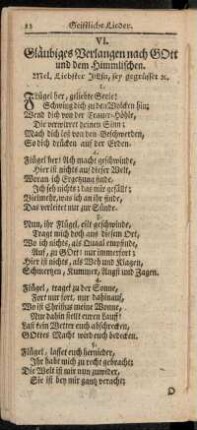 Geistliche Lieder.
VI.
Gläubiges Verlangen nach GOtt
und dem Himmlischen.
Mel. Liebster JEsu, sey gegrüsset ꝛc.
Flügel her, geliebte Seele!
Schwing dich zu den Wolcken hin;
Wend dich von der Trauer-Höhle,
Die verwirret deinen Sinn:
Mach dich los von den Beschwerden,
So dich drücken auf der Erden.
2.
Flügel her! Ach macht geschwinde,
Hier ist nichts auf dieser Welt,
Woran ich Ergetzung finde.
Ich seh nichts; das mir gefällt;
Vielmehr, was ich an ihr finde,
Das verleitet nur zur Sünde.
3.
Nun, ihr Flügel, eilt geschwinde,
Tragt mich doch aus diesem Ort,
Wo ich nichts, als Quaal empfinde,
Auf, zu GOtt! nur immerfort;
Hier ist nichts, als Weh und Klagen,
Schmertzen, Kummer, Angst und Zagen.
4.
Flügel, traget zu der Sonne,
Fort nur fort, nur dahinauf,
Wo ist Christus meine Wonne,
Nur dahin stellt euren Lauff!
Laßt kein Wetter euch abschrecken,
GOttes Macht wird euch bedecken.
5.
Flügel, lasset euch hernieder,
Ihr habt mich zu recht gebracht;
Die Welt ist mir nun zuwider,
Sie ist bey mir gantz veracht;